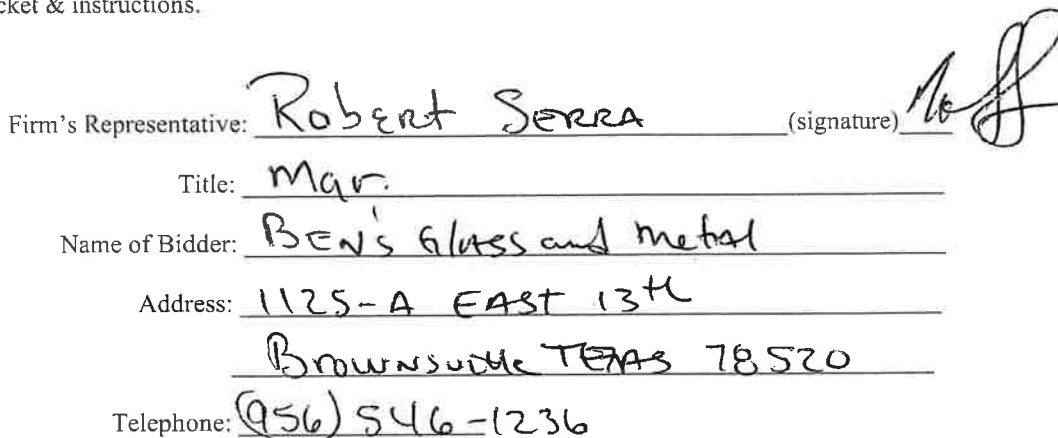 cket & instructions.
Firm's Representative: Robert SERRA (signature)
Title: Mgr.
Name of Bidder: BEN'S Glass and Metal
Address: 1125-A EAST 13th
Brownsville TEXAS 78520
Telephone: (956) 546-1236